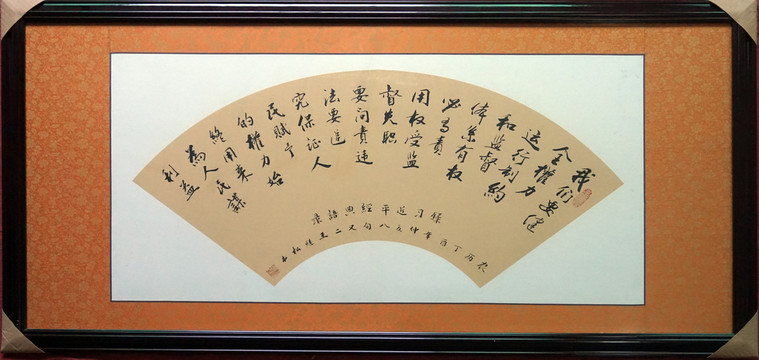 我们要健
全權力
运行制約
和監督
体系有权
必有責
用权受监
督失职
要问责违
法要追
究保证人
民赋予
的權力始
終用来
為人民謀
利益
錄习近平經典語录
农历丁酉年仲夏八旬又二王德松书